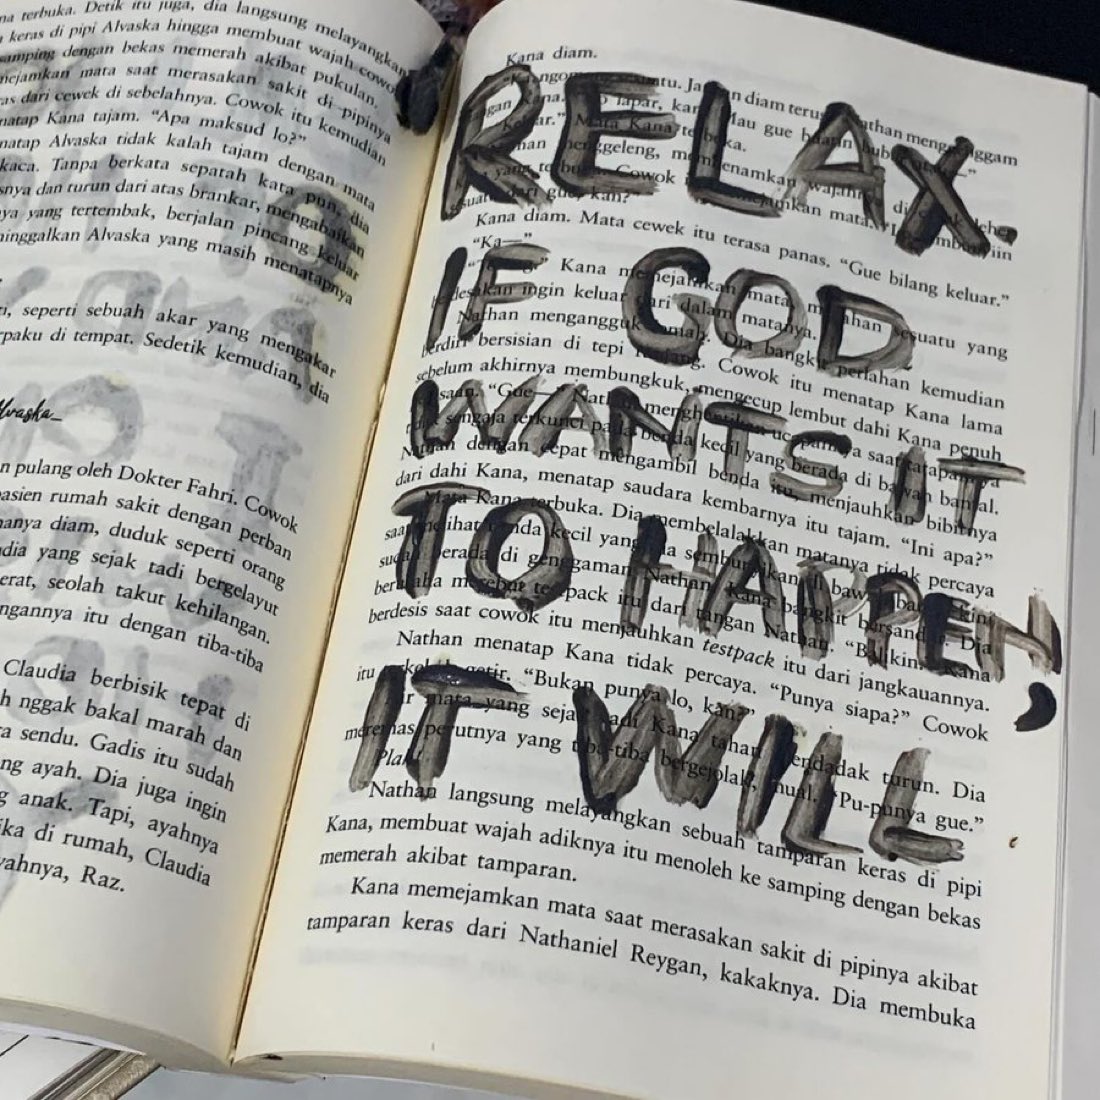 na terbuka. Detik itu juga, dia langsung melayangkan
keras di pipi Alvaska hingga membuat wajah cowo
samping dengan bekas memerah akibat pukulan.
mejamkan mata saat merasakan sakit di pipinya
as dari cewek di sebelahnya. Cowok itu kemudian
natap Kana tajam. “Apa maksud lo?”
natap Alvaska tidak kalah tajam dengan mata
kaca. Tanpa berkata sepatah kata pun, dia
snya dan turun dari atas brankar, mengabaikan
ya yang tertembak, berjalan pincang keluar
ninggalkan Alvaska yang masih menatapnya
, seperti sebuah akar yang mengakar
rpaku di tempat. Sedetik kemudian, dia
Alvaska
n pulang oleh Dokter Fahri. Cowok
asien rumah sakit dengan perban
hanya diam, duduk seperti orang
dia yang sejak tadi bergelayut
erat, seolah takut kehilangan.
ngannya itu dengan tiba-tiba
Claudia berbisik tepat di
h nggak bakal marah dan
a sendu. Gadis itu sudah
ng ayah. Dia juga ingin
g anak. Tapi, ayahnya
ika di rumah, Claudia
yahnya, Raz.
RELAX
IF GOD
WANTS IT
TO HAPPEN,
IT WILL
Kana diam.
diam terus Nathan menggenggam
lapar, kan? Mau gue
Mata Kana terbuka.
menggeleng, membenamkan wajahnya di
Cowok
gue, kan?
Kana diam. Mata cewek itu terasa panas. “Gue bilang keluar.”
“Ka—”
Kana memejamkan mata, menahan sesuatu yang
berdesakan ingin keluar dari dalam matanya.
Nathan mengangguk lemah. Dia bangkit perlahan kemudian
berdiri bersisian di tepi ranjang. Cowok itu menatap Kana lama
sebelum akhirnya membungkuk, mengecup lembut dahi Kana penuh
“Gue—” Nathan menghentikan ucapannya saat tatapannya
sengaja terkunci pada benda kecil yang berada di bawah bantal.
Nathan dengan cepat mengambil benda itu, menjauhkan bibirnya
dari dahi Kana, menatap saudara kembarnya itu tajam. “Ini apa?”
Mata Kana terbuka. Dia membelalakkan matanya tidak percaya
saat melihat benda kecil yang dia sembunyikan di bawah bantal kini
sudah berada di genggaman Nathan. Kana bangkit bersandar. Dia
berusaha merebut testpack itu dari tangan Nathan. “Balikin.” Kana
berdesis saat cowok itu menjauhkan testpack itu dari jangkauannya.
Nathan menatap Kana tidak percaya. “Punya siapa?” Cowok
itu terkekeh getir. “Bukan punya lo, kan?”
Air mata yang sejak tadi Kana tahan mendadak turun. Dia
meremas perutnya yang tiba-tiba bergejolak, mual. “Pu-punya gue.”
Plak!
Nathan langsung melayangkan sebuah tamparan keras di pipi
Kana, membuat wajah adiknya itu menoleh ke samping dengan bekas
memerah akibat tamparan.
Kana memejamkan mata saat merasakan sakit di pipinya akibat
tamparan keras dari Nathaniel Reygan, kakaknya. Dia membuka